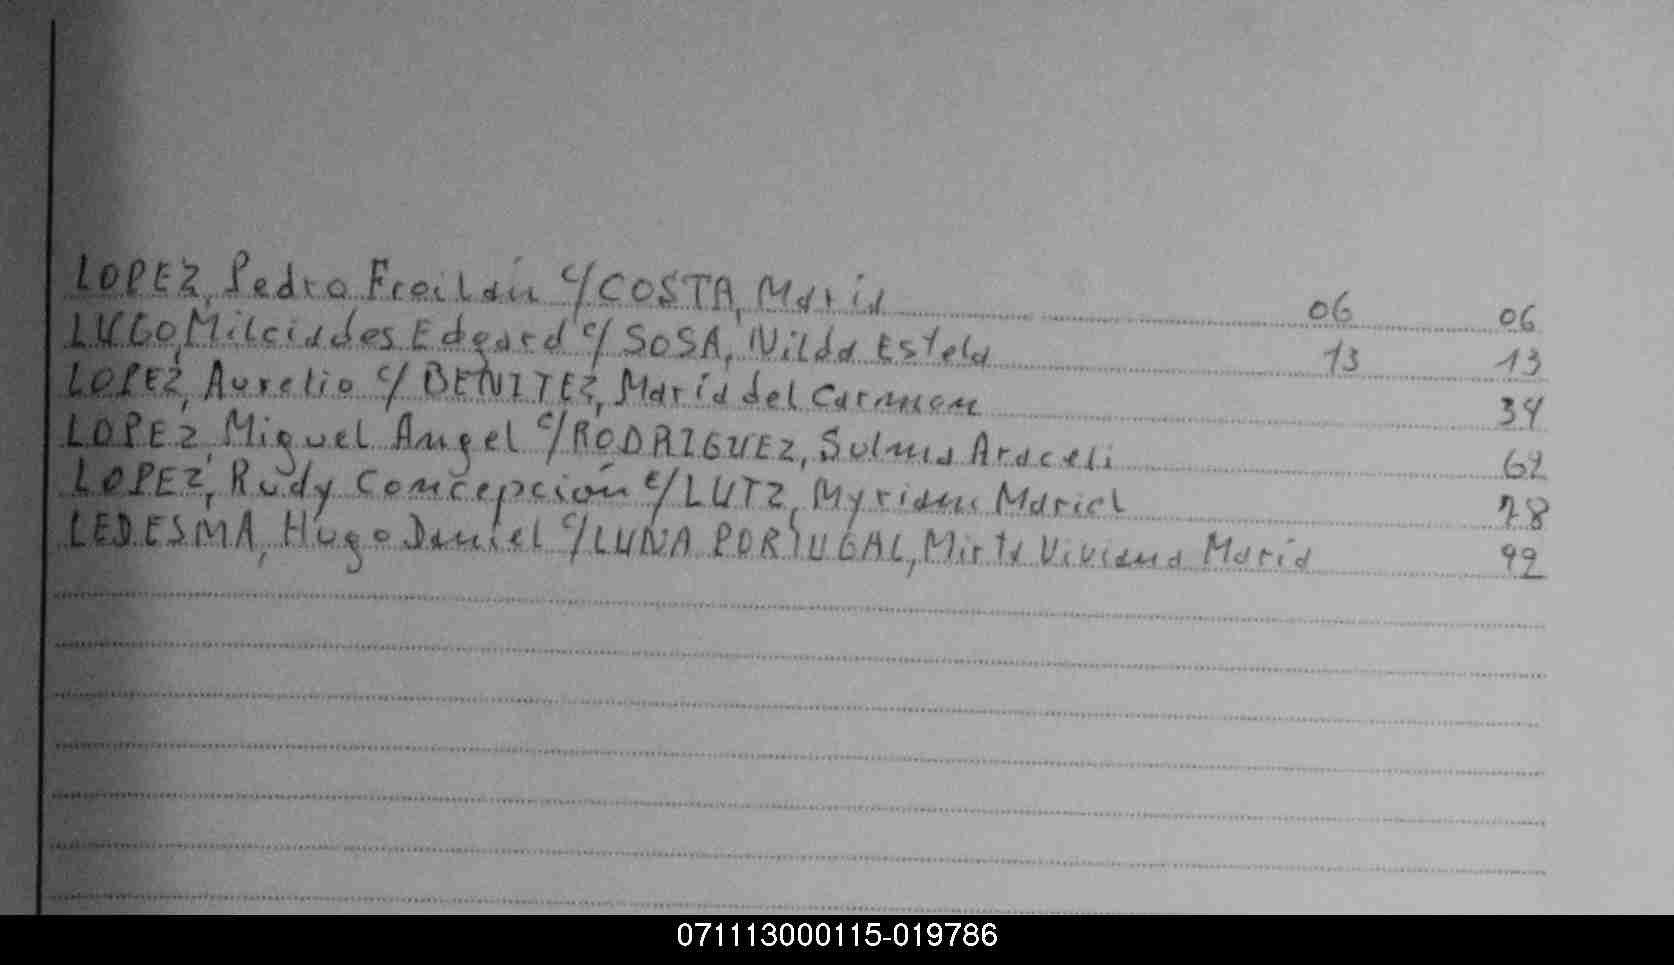 LOPEZ, Pedro Froilán c/ COSTA, María 06 06
LUGO, Milciades Edgard c/ SOSA, Nilda Estela 13 13
LOPEZ, Aurelio c/ BENITEZ, María del Carmen 34
LOPEZ, Miguel Angel c/ RODRIGUEZ, Sulma Araceli 62
LOPEZ, Rudy Concepción c/ LUTZ, Myriam Mariel 78
LEDESMA, Hugo Daniel c/ LUNA PORTUGAL, Mirta Viviana María 92
071113000115-019786